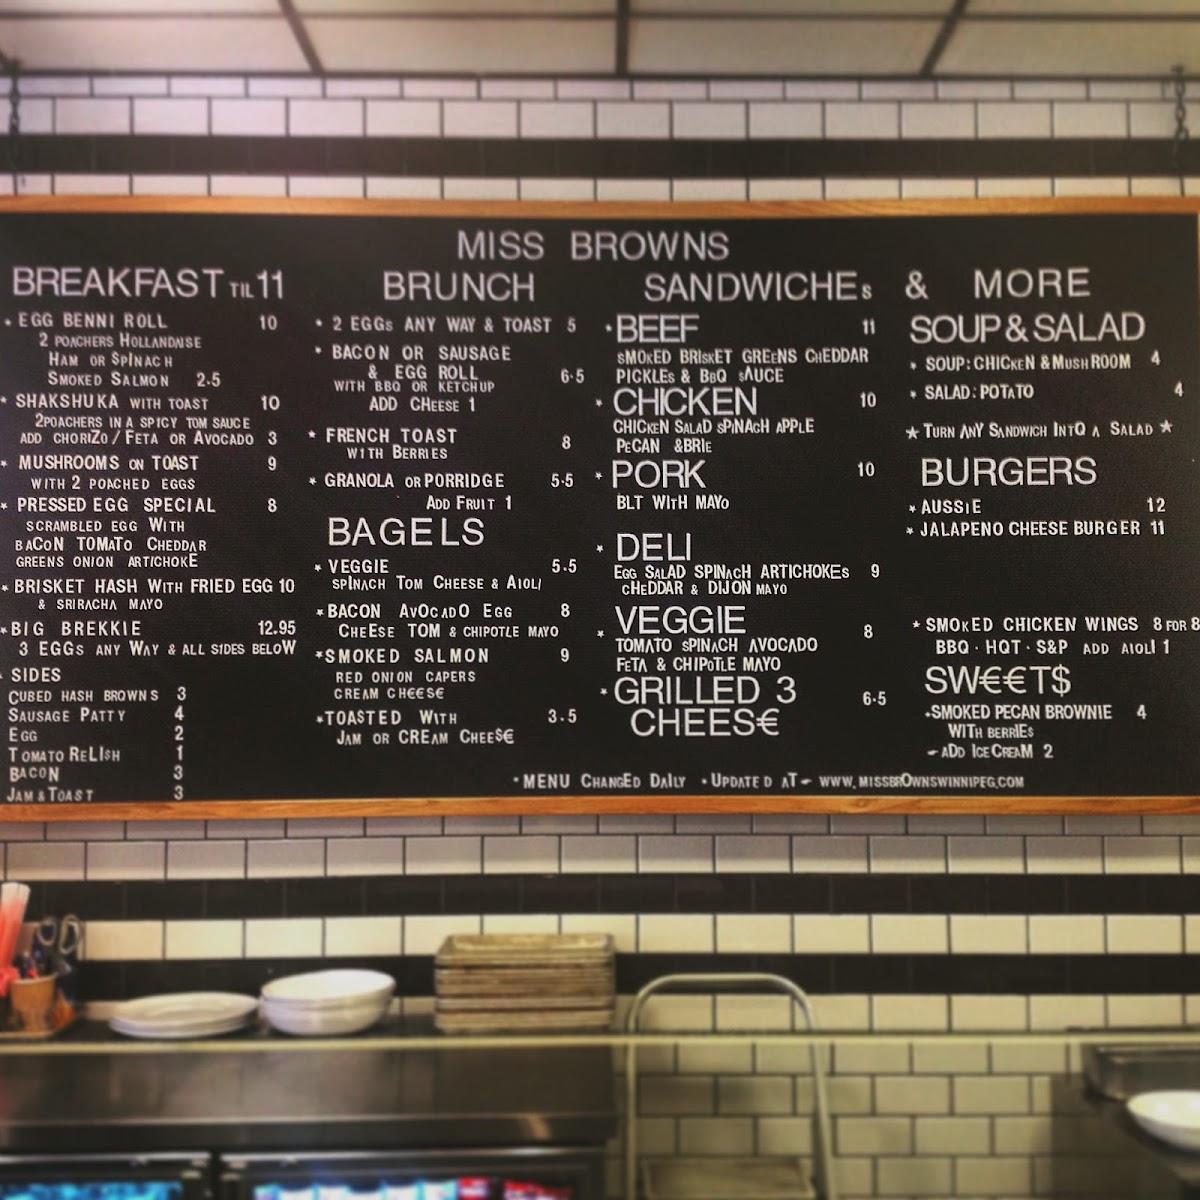 MISS BROWNS
BREAKFAST TIL 11
* EGG BENNI ROLL 10
2 POACHERS HOLLANDAISE
HAM OR SPINACH
SMOKED SALMON 2.5
* SHAKSHUKA WITH TOAST 10
2POACHERS IN A SPICY TOM SAUCE
ADD CHORIZO / FETA OR AVOCADO 3
* MUSHROOMS ON TOAST 9
WITH 2 POACHED EGGS
* PRESSED EGG SPECIAL 8
SCRAMBLED EGG WITH
BACON TOMATO CHEDDAR
GREENS ONION ARTICHOKE
* BRISKET HASH WITH FRIED EGG 10
& SRIRACHA MAYO
* BIG BREKKIE 12.95
3 EGGS ANY WAY & ALL SIDES BELOW
SIDES
CUBED HASH BROWNS 3
SAUSAGE PATTY 4
EGG 2
TOMATO RELISH 1
BACON 3
JAM & TOAST 3
BRUNCH
* 2 EGGS ANY WAY & TOAST 5
* BACON OR SAUSAGE
& EGG ROLL 6.5
WITH BBQ OR KETCHUP
ADD CHEESE 1
* FRENCH TOAST 8
WITH BERRIES
* GRANOLA OR PORRIDGE 5.5
ADD FRUIT 1
BAGELS
* VEGGIE 5.5
SPINACH TOM CHEESE & AIOLI
* BACON AVOCADO EGG 8
CHEESE TOM & CHIPOTLE MAYO
* SMOKED SALMON 9
RED ONION CAPERS
CREAM CH€€S€
* TOASTED WITH 3.5
JAM OR CREAM CHEE$€
SANDWICHES & MORE
* BEEF 11
SMOKED BRISKET GREENS CHEDDAR
PICKLES & BBQ SAUCE
* CHICKEN 10
CHICKEN SALAD SPINACH APPLE
PECAN & BRIE
* PORK 10
BLT WITH MAYO
* DELI
EGG SALAD SPINACH ARTICHOKES 9
CHEDDAR & DIJON MAYO
* VEGGIE 8
TOMATO SPINACH AVOCADO
FETA & CHIPOTLE MAYO
* GRILLED 3 6.5
CHEES€
SOUP & SALAD
* SOUP: CHICKEN & MUSHROOM 4
* SALAD: POTATO 4
★ TURN ANY SANDWICH INTO A SALAD ★
BURGERS
* AUSSIE 12
* JALAPENO CHEESE BURGER 11
* SMOKED CHICKEN WINGS 8 FOR 8
BBQ · HOT · S&P ADD AIOLI 1
SW€€T$
* SMOKED PECAN BROWNIE 4
WITH BERRIES
- ADD ICE CREAM 2
* MENU CHANGED DAILY * UPDATED AT - WWW.MISSBROWNSWINNIPEG.COM